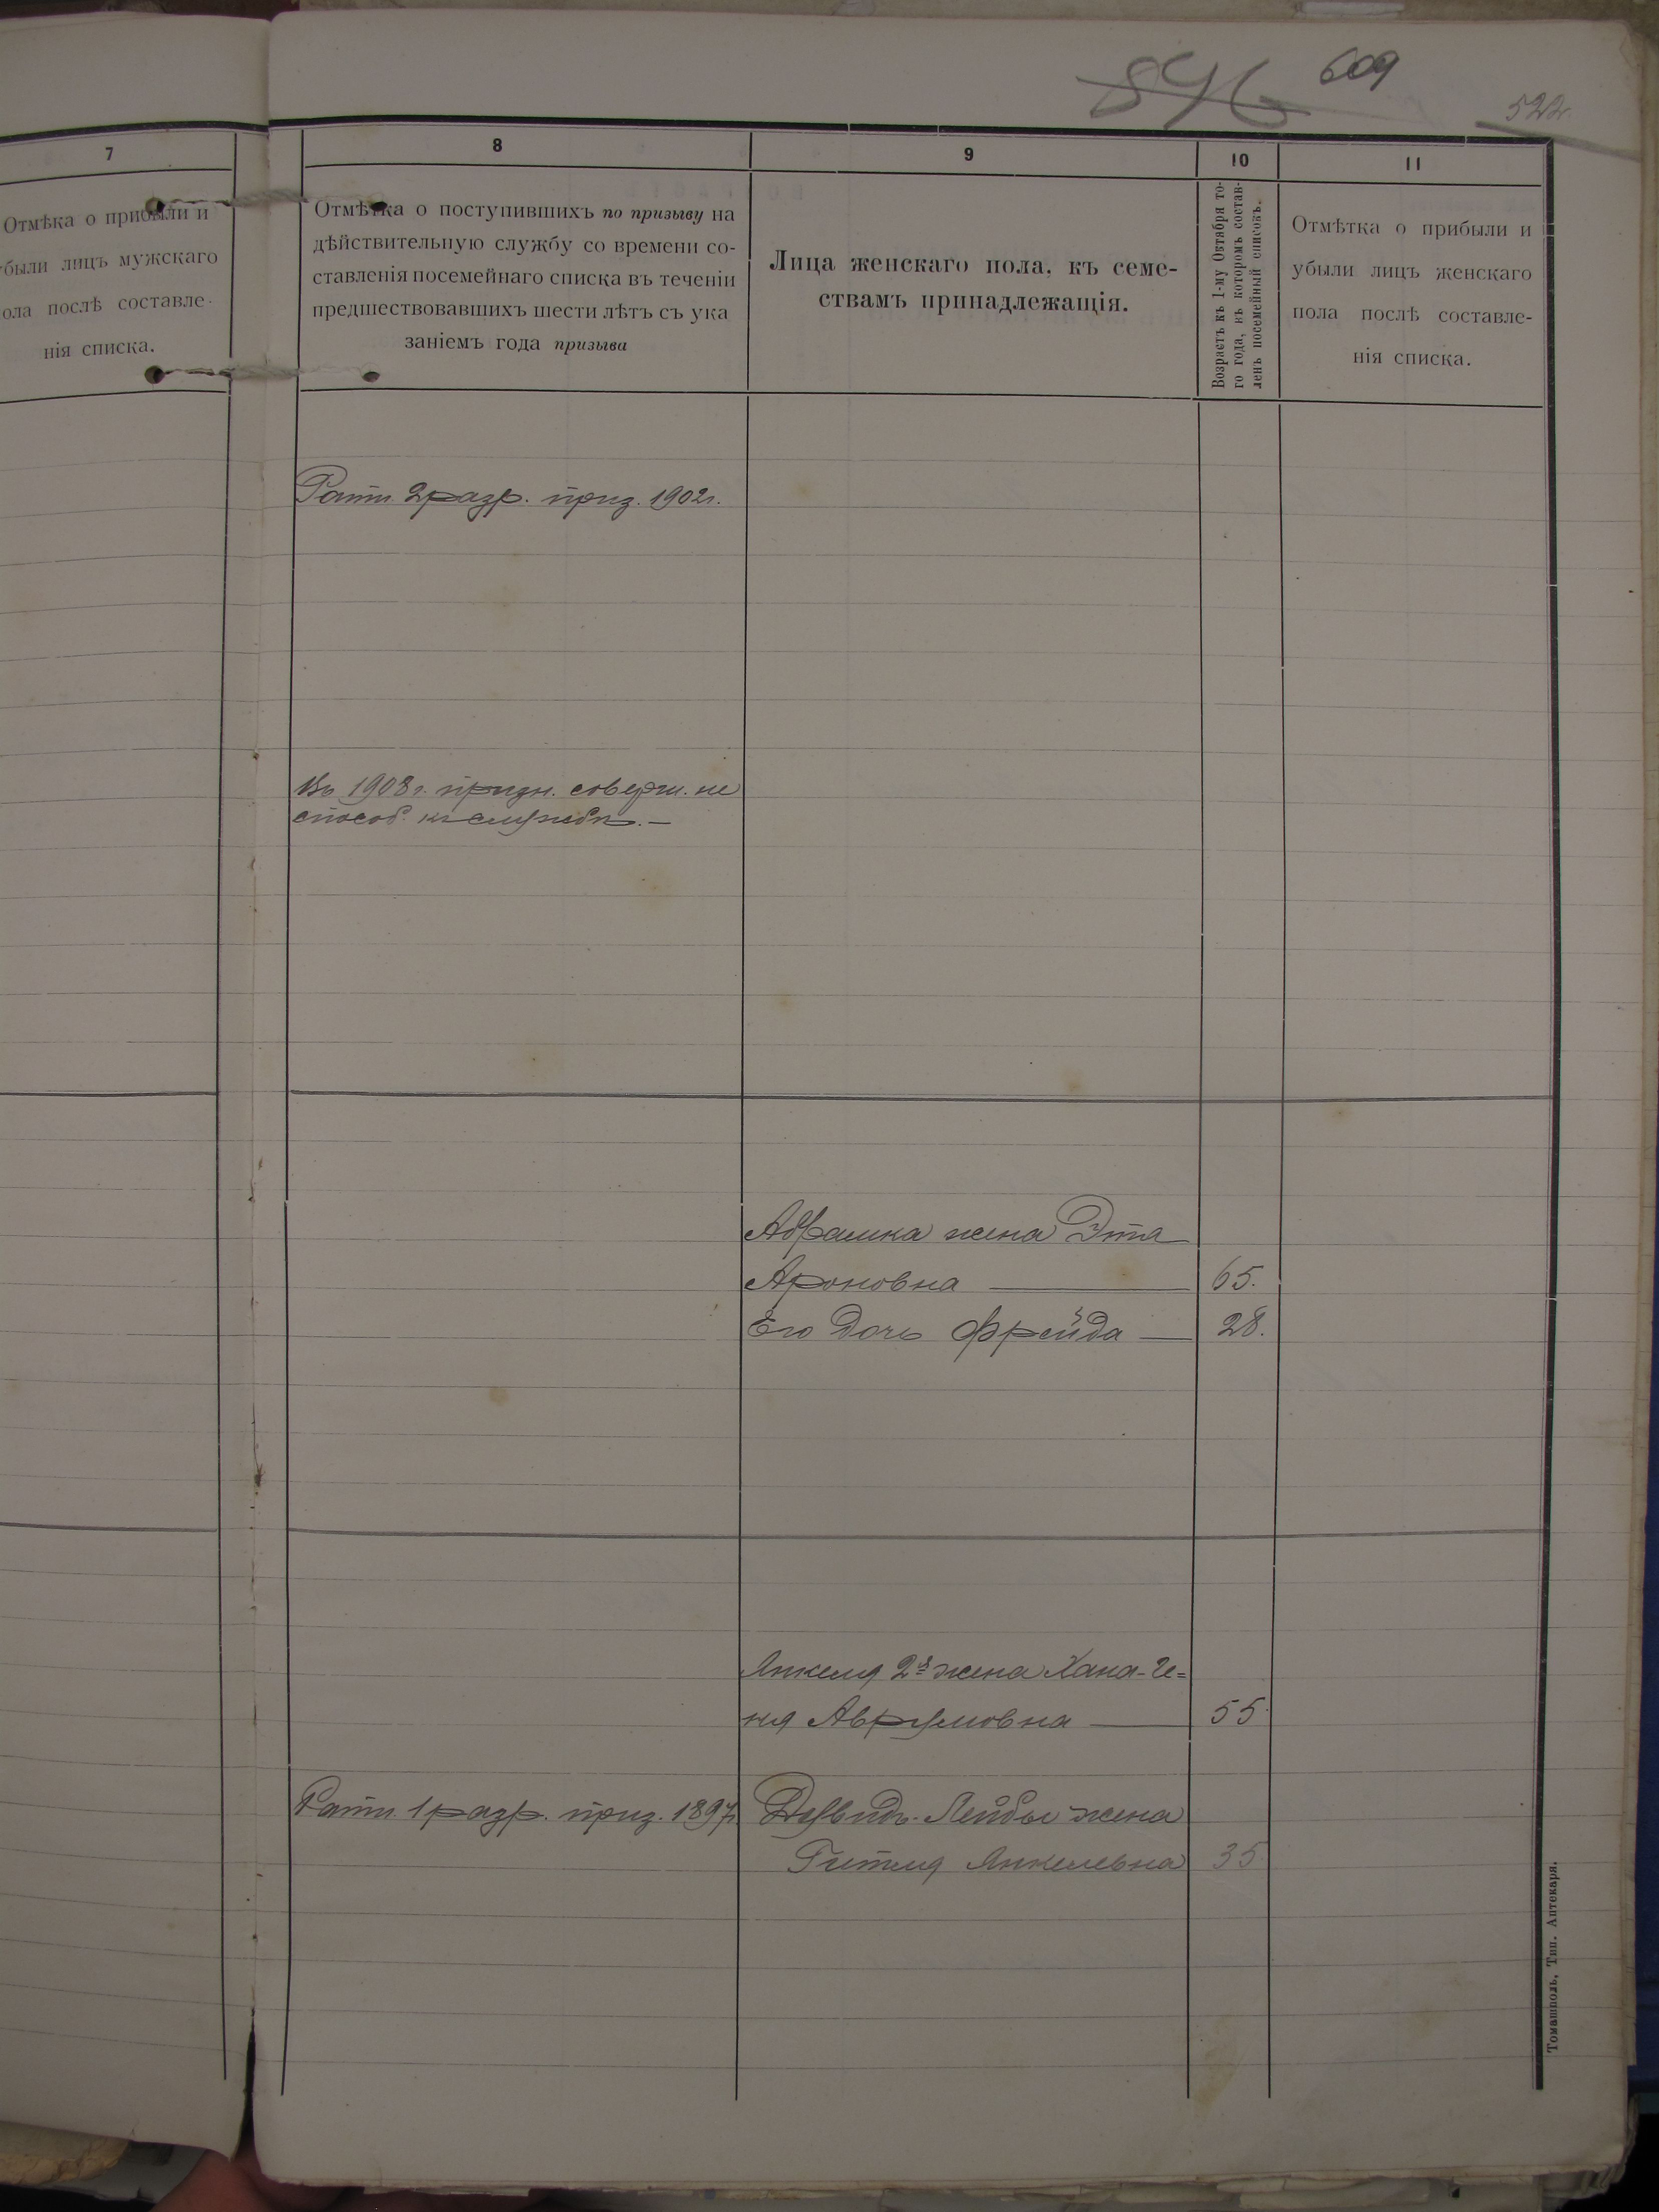 846 609
522
7
Отмѣка о прибыли и
были лицъ мужскаго
ола послѣ составле-
нія списка.
8
Отмѣтка о поступившихъ по призыву на
дѣйствительную службу со времени со-
ставленія посемейнаго списка въ теченіи
предшествовавшихъ шести лѣтъ съ ука
заніемъ года призыва
9
Лица женскаго пола, къ семе-
ствамъ принадлежащія.
10
Возрастъ къ 1-му Октября то-
го года, въ которомъ состав-
ленъ посемейный списокъ.
11
Отмѣтка о прибыли и
убыли лицъ женскаго
пола послѣ составле-
нія списка.
Ратн. 2 разр. приз. 1902г.
Въ 1908г. призн. соверш. не
способ. къ службѣ.—
Абрамка жена Этя
Ароновна — 65.
Его дочь Фрейда — 28.
Янкеля 2я жена Хана-Ге=
ня Аврумовна — 55
Ратн. 1 разр. приз. 1897г.
Дувидъ-Лейбы жена
Гитля Янкелевна 35
Томашполь, Тип. Аптекаря.